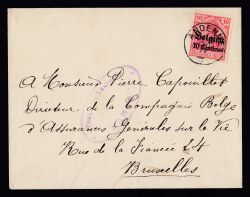 10 10
Belgien
10 Centimes
A Monsieur Pierre Capouillet
Directeur de la Compagnie Belge
d'Assurances Générales sur la Vie
Rue de la Fiancée 24
Bruxelles